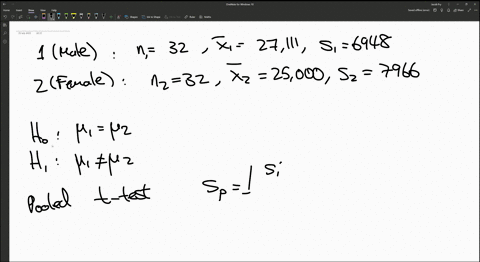 1 (Male) : n₁ = 32 , x̄₁ = 27,111 , S₁ = 6948
2 (Female) : n₂ = 32 , x̄₂ = 25,000 , S₂ = 7966
H₀ : μ₁ = μ₂
H₁ : μ₁ ≠ μ₂
Pooled t-test Sₚ = S